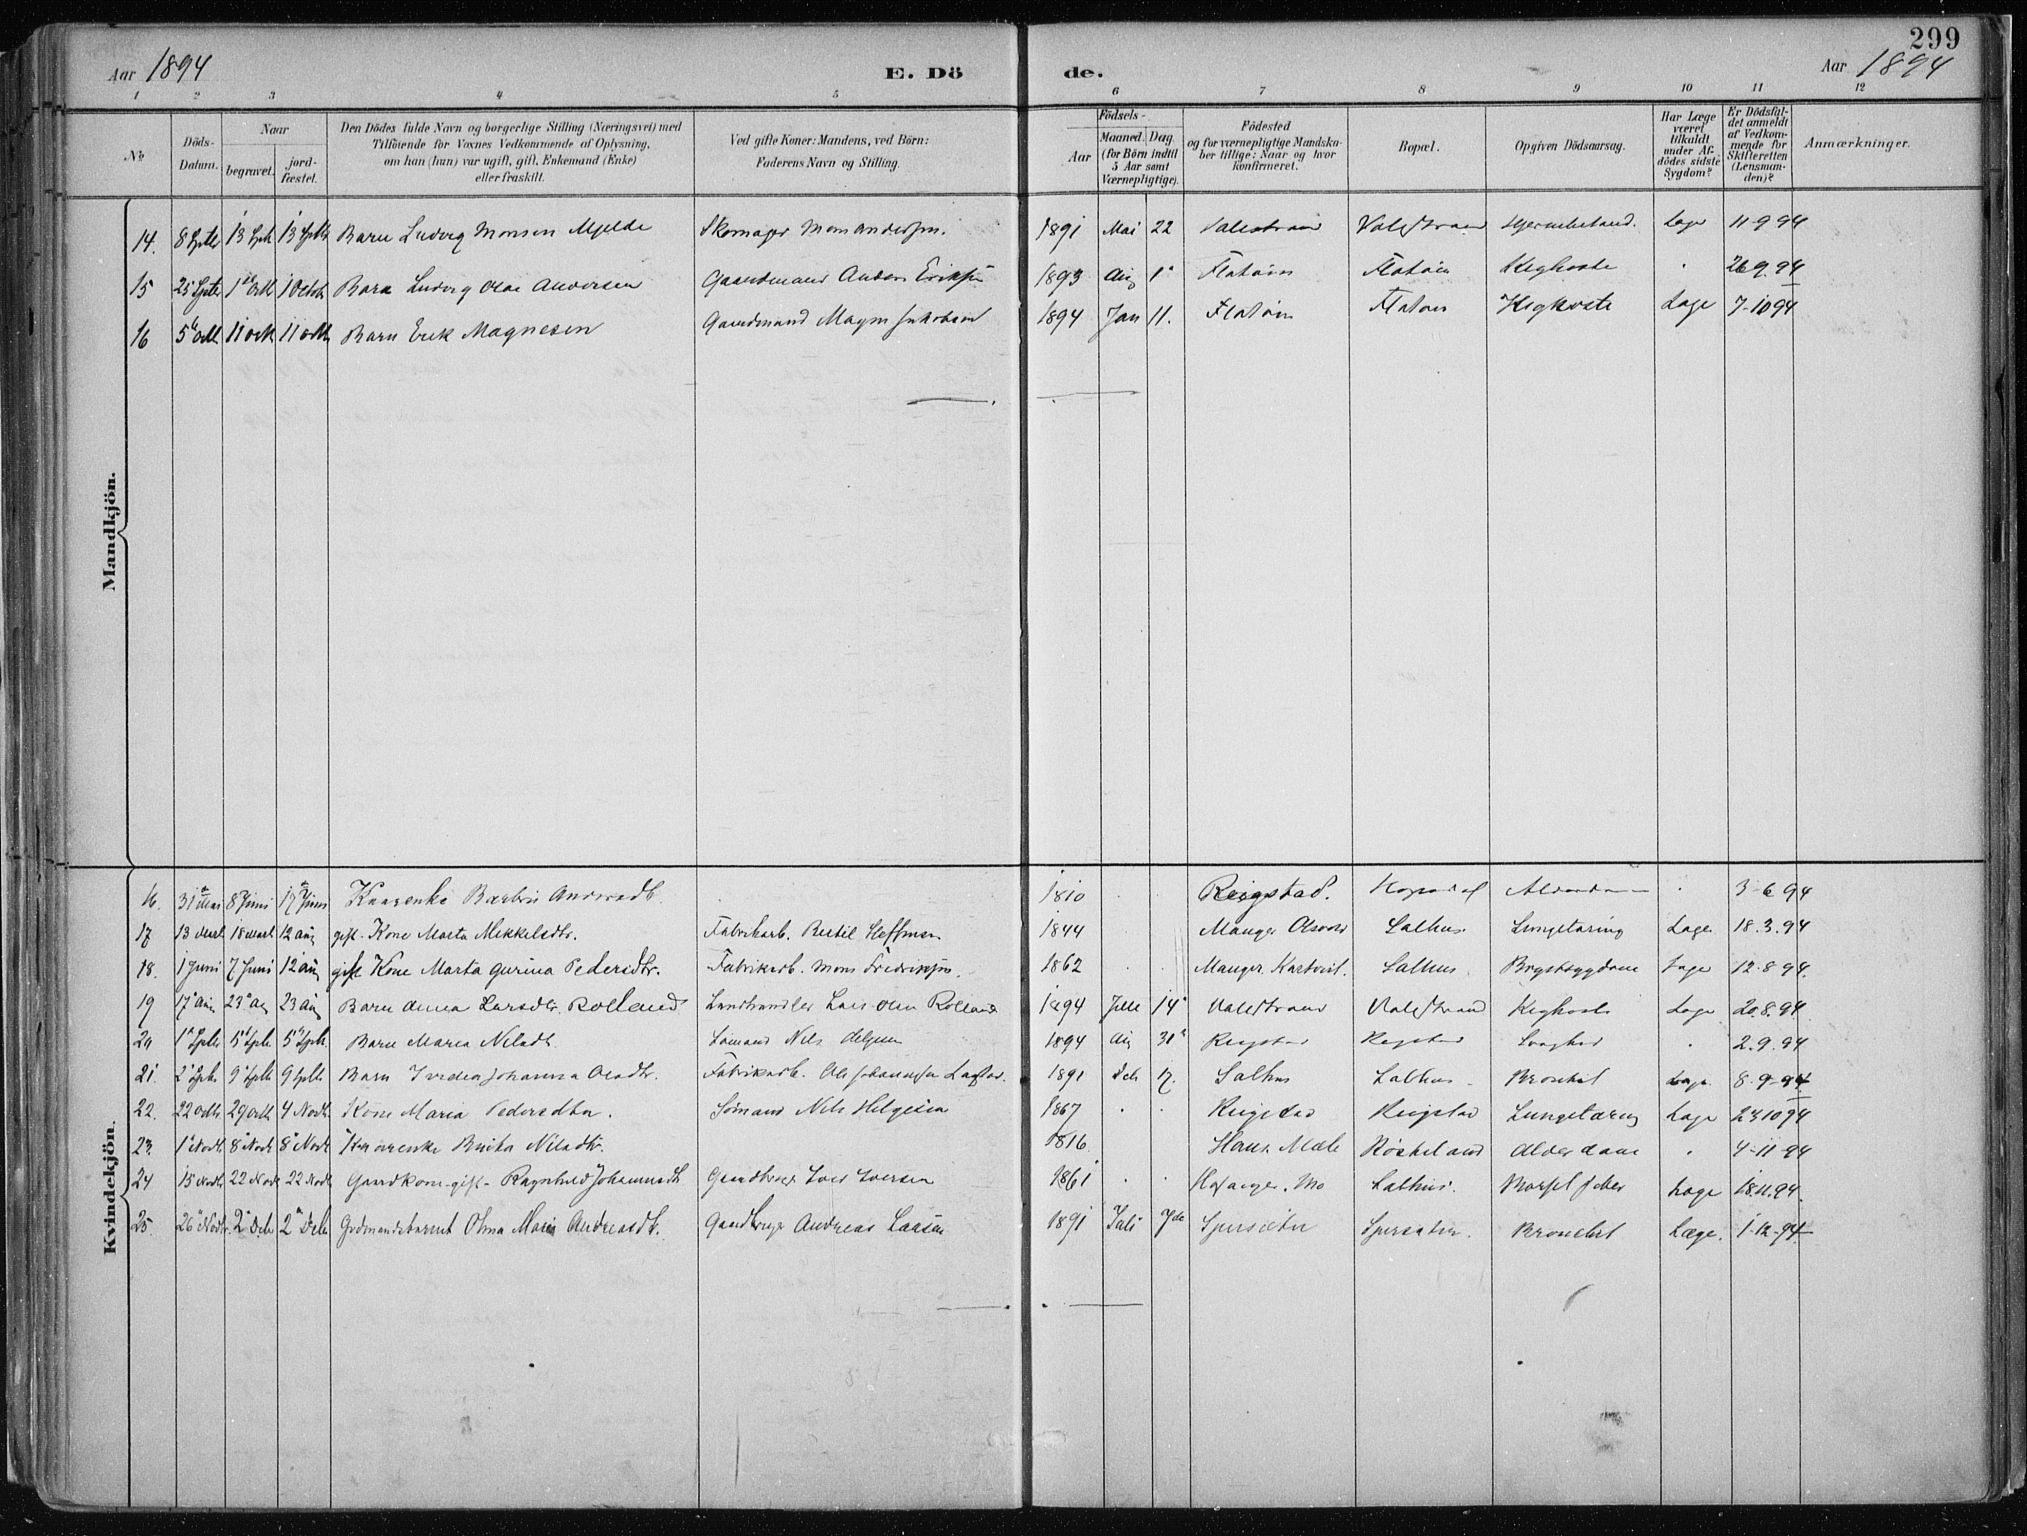 299
Aar 1894
E. Dö de.
Aar 1894
1 2 3 4 5 6 7 8 9 10 11 12
№
Döds-Datum.
Naar begravet. jordfæstet.
Den Dödes fulde Navn og borgerlige Stilling (Næringsvei) med Tilföiende for Voxnes Vedkommende af Oplysning, om han (hun) var ugift, gift, Enkemand (Enke) eller fraskilt.
Ved gifte Koner: Mandens, ved Börn: Faderens Navn og Stilling.
Födsels-
Aar Maaned. Dag. (for Börn indtil 5 Aar samt Værnepligtige).
Födested og for værnepligtige Mandskaber tillige: Naar og hvor konfirmeret.
Bopæl.
Opgiven Dödsaarsag.
Har Læge været tilkaldt under Afdödes sidste Sygdom?
Er Dödsfaldet anmeldt af Vedkommende for Skifteretten (Lensmanden)?
Anmærkninger.
Mandkjön.
14. 8 Septb 13 Sptb 13 Septb Barn Ludvig Monsen Mjelde Skomager Mons Andersen. 1891 Mai 22 Valestrand Valestrand Læge 11-9 94
15 25 Septb 1 Octb 1 Octob Barn Ludvig Olai Andersen Gaardmand Anders Eriksen 1893 Aug 1 Flatöen Flatöen Kighoste 26.9.94
16 5 Octb 11 Octb 11 Octb Barn Erik Magnesen Gaardmand Magne Jakobsen 1894 Jan 11. Flatöen Flatöen Kighoste Læge 7-10 94
Kvindekjön.
16. 31 Mai 8 Juni 17 Juni 1810 Reigstad. 3-6 94
17 13 Marts 18 Marts 12 Aug gift. Kone Marta Mikkelsdtr. Fabrikarb. Bertil 1844 Manger Salhus Lungetæring Læge 18.3.94
18. 1 Juni 7 Juni 12 Aug gift Kone Marta Gurina Pedersdtr. Fabrikarb. Mons Fredriksen. 1862 Manger Salhus Brystsygdom Læge 12-8 94.
19 17 Aug 23 Aug 23 Aug Barn Anna Larsdtr. Rolland Landhandler Lars Olsen Rolland 1894 14 Valestrand Valestrand Kighoste Læge 20.8.94
20 1 Septb 5 Septb 5 Septb Barn Maria Nilsdtr. Sömand Nils Helgesen 1894 Aug 31 Reigstad Reigstad Svaghed 2.9.94
21. 2 Septb 9 Septb 9 Septb Barn Johanna Olsdtr. Fabrikarb. Ole Johannesen 1891 Salhus Salhus Bronchit Læge 8-9-94
22. 22 Octb 29 Octb 4 Novb Kone Maria Pedersdtr. Sömand Nils Helgesen 1867 Reigstad Reigstad Lungetæring Læge 23 10 94
23. 1 Novb 8 Novb 8 Novb Brita Nilsdtr. 1816 Haus. Mæle Röskeland Alderdom 4-11-94
24 15 Novb 22 Novb 22 Novb Gaardkone gift- Ragnhild Johannesdtr Gaardbruger Iver Iversen 1861 Mo Salhus. Barsel feber Læge 18.11.94.
25. 26 Novbr. 2 Decb 2 Decb Grdmandsbarnet Olina Marie Andreasdtr. Gaardbruger Andreas Larsen 1891 Juli 7de Læge. 1-12-94